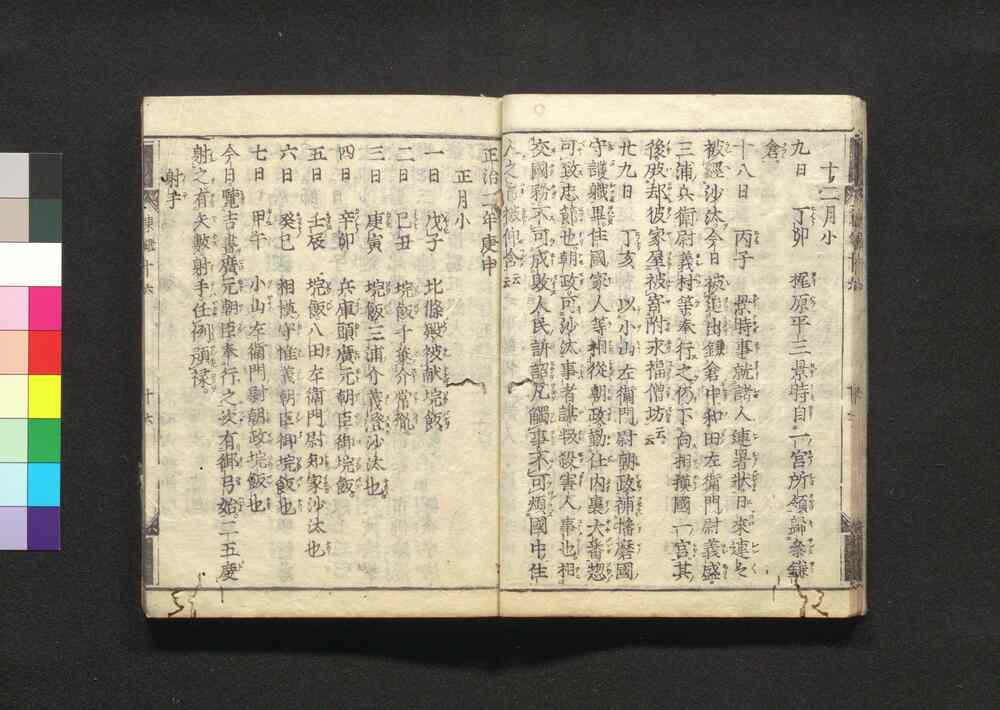 十二月小
九日 丁卯 梶原平三景時自一宮所領歸参鎌
倉
十八日 丙子 景時事就諸人連署状日來連々
被經沙汰今日被追出鎌倉中和田左衛門尉義盛
三浦兵衛尉義村等奉行之仍下向相摸國一宮其
後破却彼家屋被寄附永福僧坊云云
廿九日 丁亥 以小山左衛門尉朝政補播磨國
守護職畢住國家人等相從朝政勤仕内裏大番惣
可致忠節也朝政可沙汰事者謀叛殺害人事也相
交國務不可成敗人民訴訟凡觸事不可煩國中住
人之旨被仰含云云
正治二年庚申
正月小
一日 戊子 北條殿被献垸飯
二日 己丑 垸飯千葉介常胤
三日 庚寅 垸飯三浦介義澄沙汰也
四日 辛卯 兵庫頭廣元朝臣御垸飯
五日 壬辰 垸飯八田左衛門尉知家沙汰也
六日 癸巳 相模守惟義朝臣御垸飯也
七日 甲午 小山左衛門尉朝政垸飯也
今日覽吉書廣元朝臣奉行之次有御弓始二五度
射之有矢數射手任例頒禄
射手